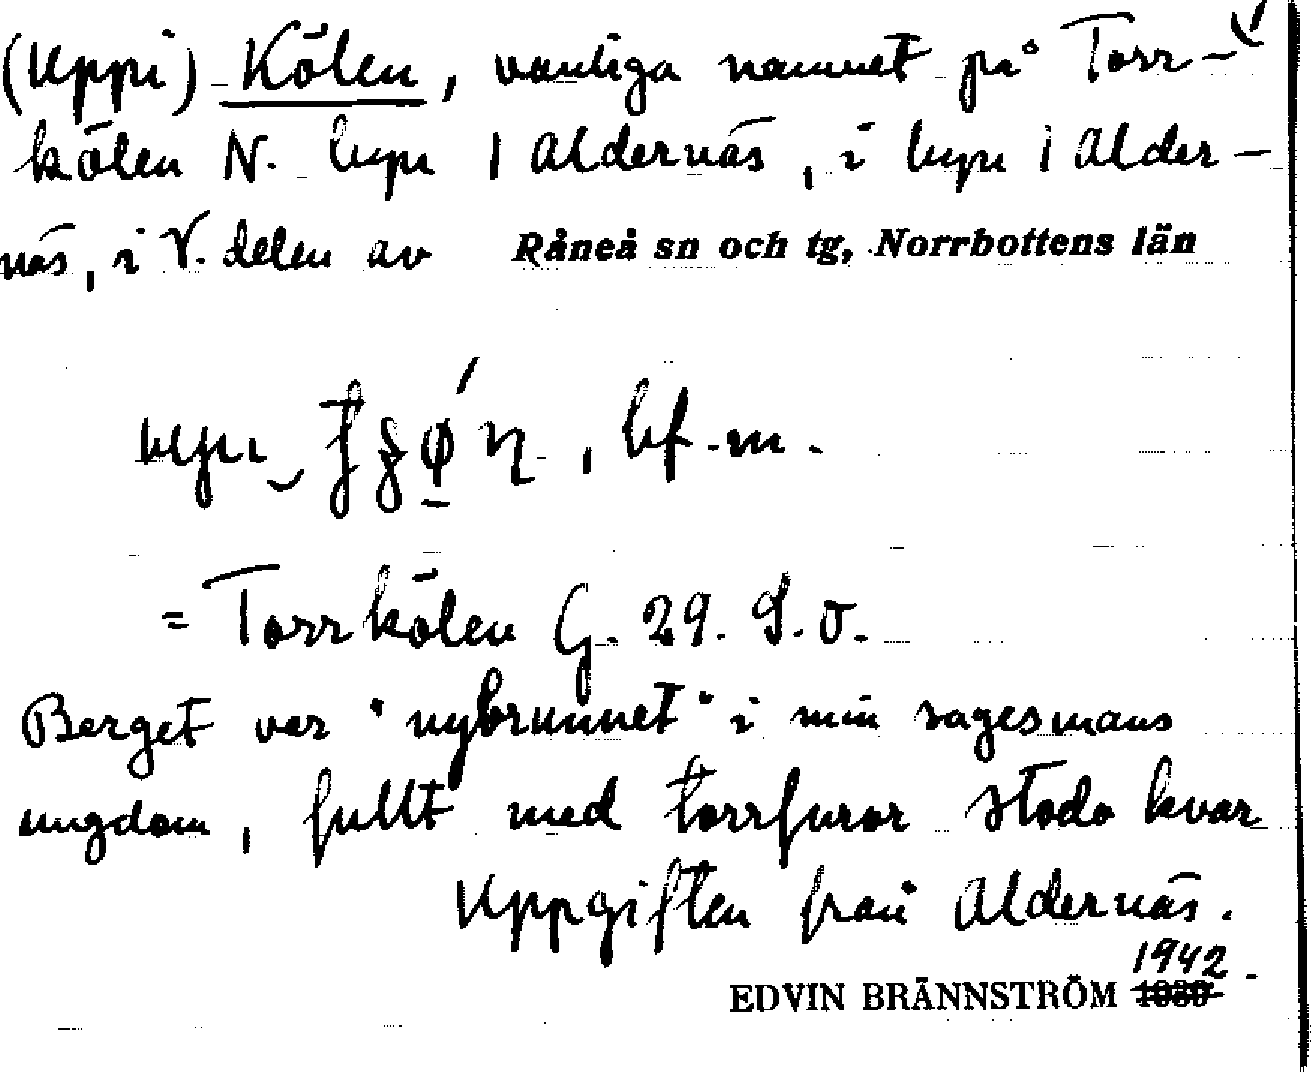 (Uppi) Kölen, vanliga namnet på Torr-
kölen N. byn i Aldernäs, i byn i Alder-
näs, i V. delen av Råneå sn och tg, Norrbottens län
, bf. m.
= Torrkölen G. 29. S.O.
Berget var "nybrunnet" i min sagesmans
ungdom, fullt med torrfuror stodo kvar
Uppgiften från Aldernäs.
1942.
EDVIN BRÄNNSTRÖM 1939